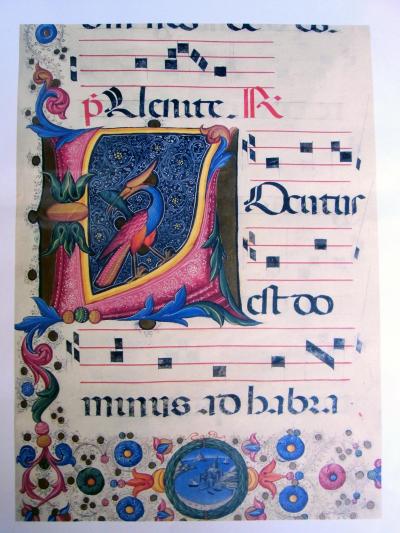 ps Uenite. R
LOcutus
est do
minus ad habra